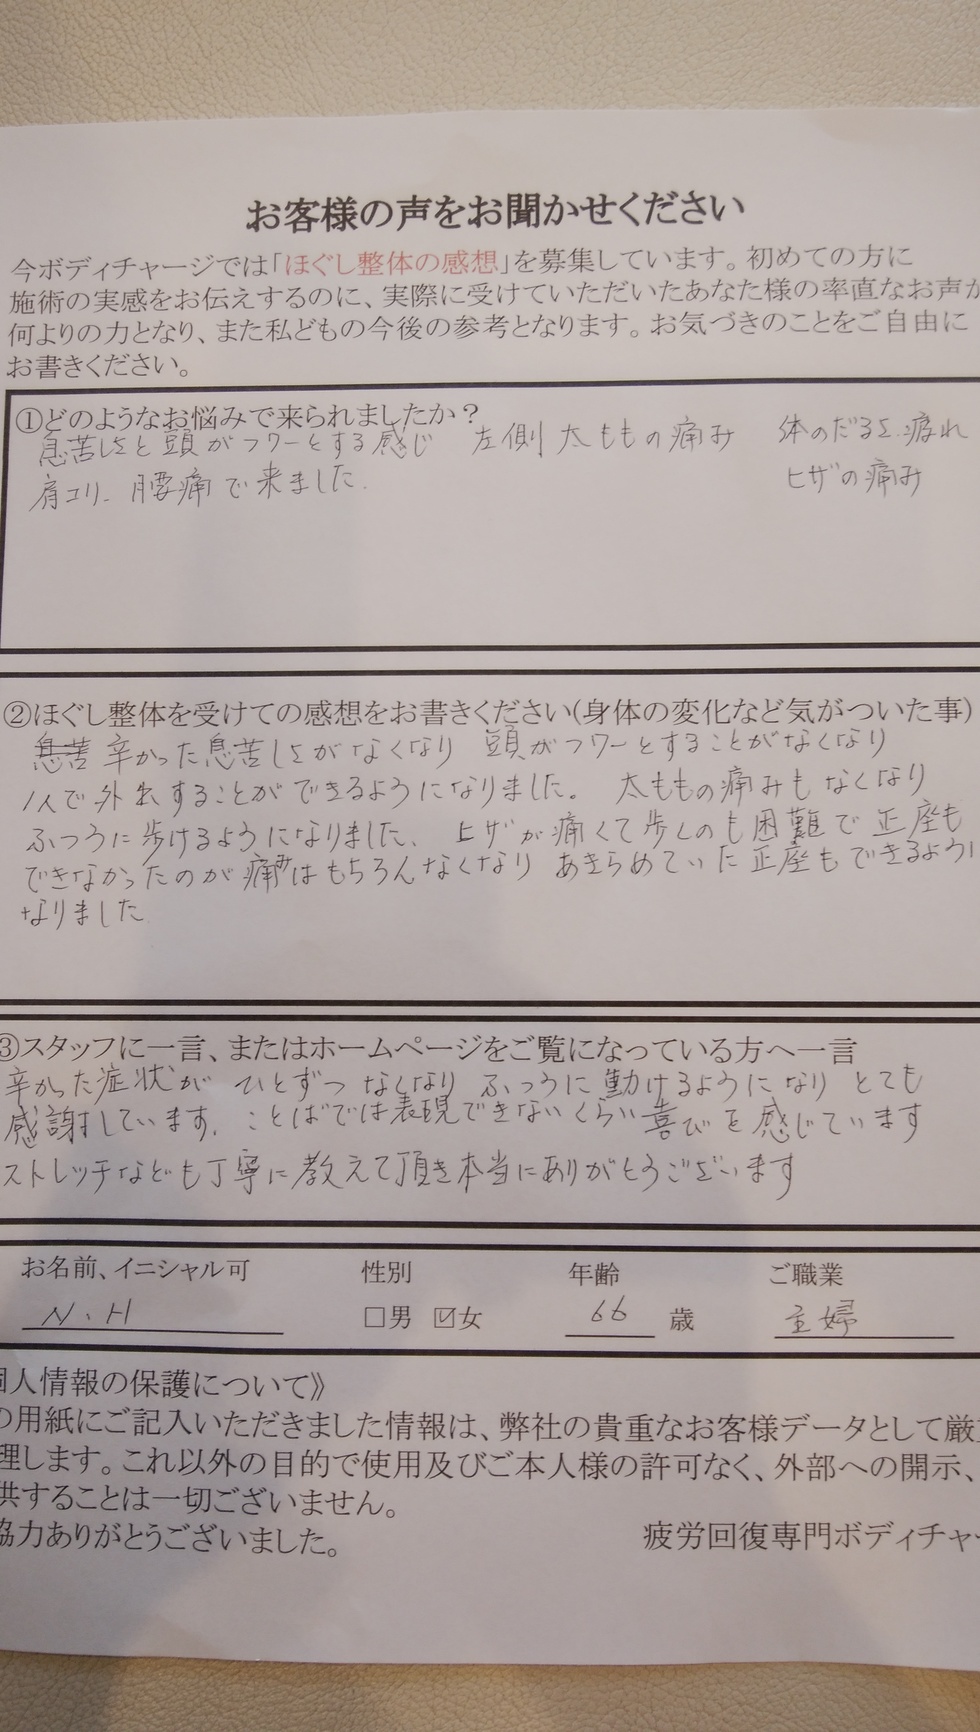 お客様の声をお聞かせください
今ボディチャージでは「ほぐし整体の感想」を募集しています。初めての方に
施術の実感をお伝えするのに、実際に受けていただいたあなた様の率直なお声が
何よりの力となり、また私どもの今後の参考となります。お気づきのことをご自由に
お書きください。
①どのようなお悩みで来られましたか?
息苦しさと頭がフワーとする感じ 左側太ももの痛み 体のだるさ、疲れ
肩コリ、腰痛で来ました。 ヒザの痛み
②ほぐし整体を受けての感想をお書きください(身体の変化など気がついた事)
辛かった息苦しさがなくなり 頭がフワーとすることがなくなり
1人で外出することができるようになりました。 太ももの痛みもなくなり
ふつうに歩けるようになりました、 ヒザが痛くて歩くのも困難で正座も
できなかったのが痛みはもちろんなくなり あきらめていた正座もできるように
なりました
③スタッフに一言、またはホームページをご覧になっている方へ一言
辛かった症状が ひとずつ なくなり ふつうに動けるようになり とても
感謝しています。 ことばでは表現できないくらい喜びを感じています
ストレッチなども丁寧に教えて頂き本当にありがとうございます
お名前、イニシャル可 性別 年齢 ご職業
N、H □男 ☑女 66 歳 主婦
個人情報の保護について》
の用紙にご記入いただきました情報は、弊社の貴重なお客様データとして厳
理します。これ以外の目的で使用及びご本人様の許可なく、外部への開示、
供することは一切ございません。
協力ありがとうございました。 疲労回復専門ボディチャー